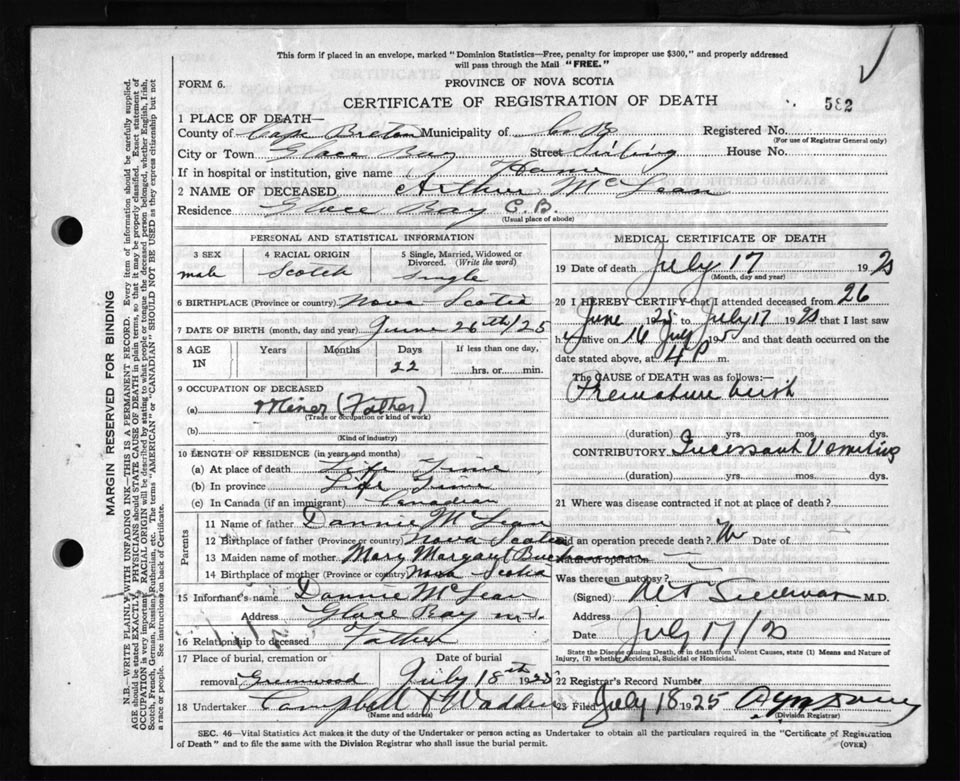 This form if placed in an envelope, marked "Dominion Statistics—Free, penalty for improper use $300," and properly addressed
will pass through the Mail "FREE."
FORM 6.
PROVINCE OF NOVA SCOTIA
CERTIFICATE OF REGISTRATION OF DEATH
582
1 PLACE OF DEATH—
County of Cape Breton Municipality of C B Registered No.
(For use of Registrar General only)
City or Town Glace Bay Street Sterling House No.
If in hospital or institution, give name Home
2 NAME OF DECEASED Arthur McLean
Residence Glace Bay C.B.
(Usual place of abode)
PERSONAL AND STATISTICAL INFORMATION
3 SEX
male
4 RACIAL ORIGIN
Scotch
5 Single, Married, Widowed or Divorced. (Write the word)
Single
6 BIRTHPLACE (Province or country) Nova Scotia
7 DATE OF BIRTH (month, day and year) June 26th/25
8 AGE IN
Years Months Days If less than one day,
22 hrs. or min.
9 OCCUPATION OF DECEASED
(a) Miner (Father)
(Trade or occupation or kind of work)
(b)
(Kind of industry)
10 LENGTH OF RESIDENCE (in years and months)
(a) At place of death Life Time
(b) In province Life Time
(c) In Canada (if an immigrant) Canadian
Parents
11 Name of father Dannie McLean
12 Birthplace of father (Province or country) Nova Scotia
13 Maiden name of mother Mary Margaret
14 Birthplace of mother (Province or country) Nova Scotia
15 Informant's name Dannie McLean
Address Glace Bay N.S.
16 Relationship to deceased Father
17 Place of burial, cremation or removal Greenwood
Date of burial July 18th 1925
18 Undertaker Campbell & Wadden
(Name and address)
MEDICAL CERTIFICATE OF DEATH
19 Date of death July 17 1925
(Month, day and year)
20 I HEREBY CERTIFY that I attended deceased from 26
June 1925 to July 17 1925 that I last saw
h alive on 16 July 1925 and that death occurred on
date stated above, at 4 P m.
The CAUSE of DEATH was as follows:—
Premature birth
(duration) yrs. mos. dys.
CONTRIBUTORY. Incessant Vomiting
(duration) yrs. mos. dys.
21 Where was disease contracted if not at place of death?
Did an operation precede death? No Date of
Nature of operation
Was there an autopsy?
(Signed) M.D.
Address
Date July 17/25
State the Disease causing Death, or in death from Violent Causes, state (1) Means and Nature of
Injury, (2) whether Accidental, Suicidal or Homicidal.
22 Registrar's Record Number
23 Filed July 18 1925
(Division Registrar)
SEC. 46—Vital Statistics Act makes it the duty of the Undertaker or person acting as Undertaker to obtain all the particulars required in the "Certificate of Registration
of Death" and to file the same with the Division Registrar who shall issue the burial permit.
(OVER)
MARGIN RESERVED FOR BINDING
N.B.—WRITE PLAINLY WITH UNFADING INK—THIS IS A PERMANENT RECORD. Every item of information should be carefully supplied.
AGE should be stated EXACTLY. PHYSICIANS should STATE CAUSE OF DEATH in plain terms, so that it may be properly classified. Exact statement of
OCCUPATION is very important. RACIAL ORIGIN will be described by stating to what people or tongue the deceased person belonged, whether English, Irish,
Scotch, French, German, Russian, Ruthenian, etc. The terms "AMERICAN" or "CANADIAN" SHOULD NOT BE USED as they express citizenship but not
a race or people. See instructions on back of Certificate.